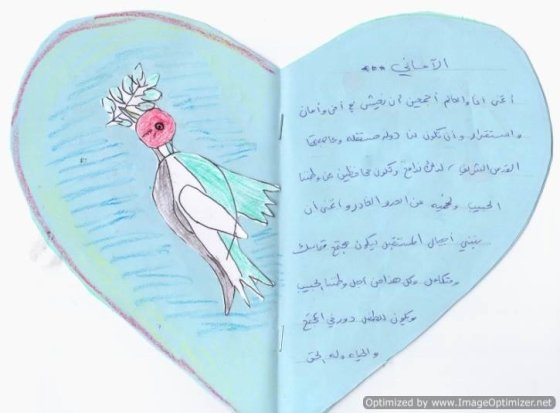 الأماني ***
أتمنى أنا والعالم أجمعين أن نعيش بأمن وأمان
واستقرار وأن تكون لنا دولة مستقلة وعاصمتها
القدس الشريف، ونكون محافظين عن وطننا
الحبيب ونحميه من العدو الغادر وأتمنى أن
يبني أجيال المستقبل ليكون مجتمع متماسك
ومتكامل وكل هذا من أجل وطننا الحبيب
ويكون للطفل دور في المجتمع
والحياة وله الحق
Optimized by www.ImageOptimizer.net